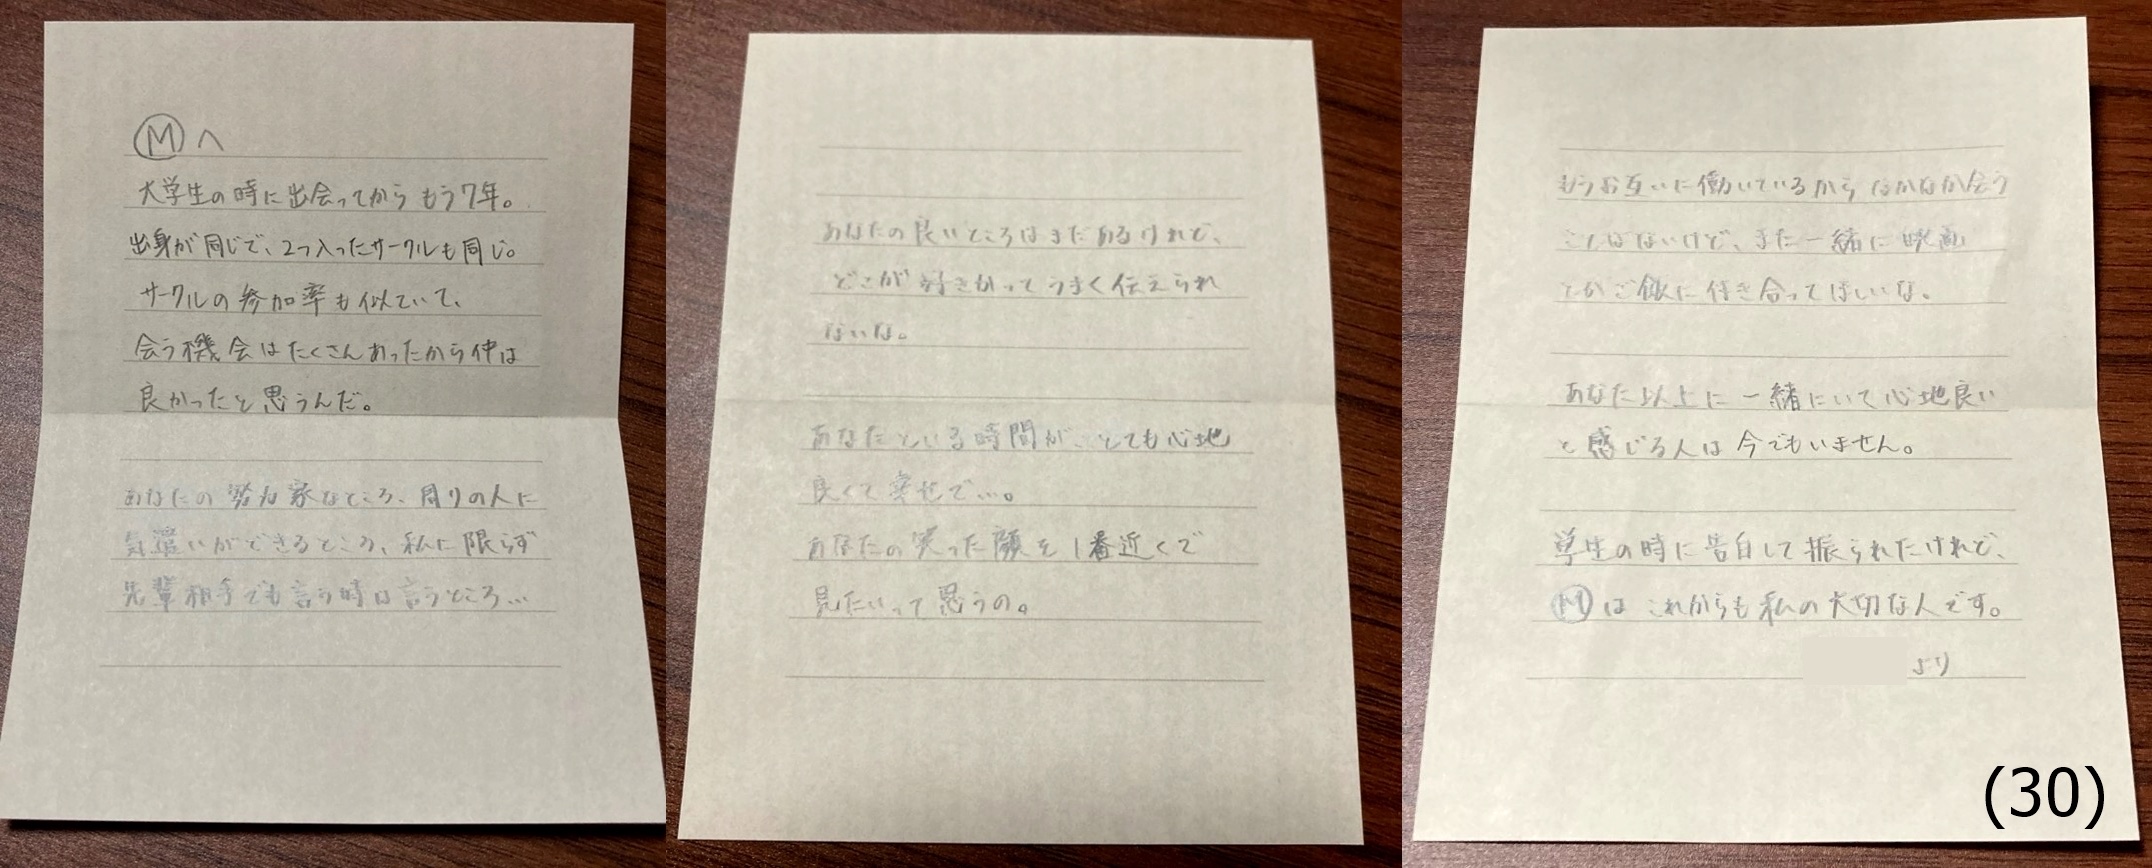 Ⓜへ
大学生の時に出会ってからもう7年。
出身が同じで、2つ入ったサークルも同じ。
サークルの参加率も似ていて、
会う機会はたくさんあったから仲は
良かったと思うんだ。
あなたの努力家なところ、周りの人に
気遣いができるところ、私に限らず
先輩相手でも言う時は言うところ…
あなたの良いところはまだあるけれど、
どこが好きかってうまく伝えられ
ないな。
あなたといる時間が、とても心地
良くて幸せで…。
あなたの笑った顔を1番近くで
見たいって思うの。
もうお互いに働いているからなかなか会う
ことはないけど、また一緒に映画
とかご飯に付き合ってほしいな。
あなた以上に一緒にいて心地良い
と感じる人は今でもいません。
学生の時に告白して振られたけれど、
Ⓜはこれからも私の大切な人です。
より
(30)